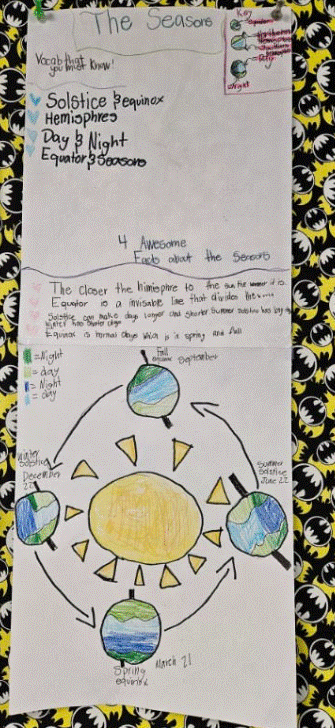 The Seasons
Key
Vocab that
you must Know!
Solstice & equinox
Hemisphres
Day & Night
Equator & Seasons
Night
4 Awesome
Facts about the Seasons
The closer the himisphre to the sun the warmer it is.
Equator is a invisable line that divides the
Solstice can make days longer and shorter Summer solstice has long
winter has shorter days
Equinox is normal days which is in spring and fall
=Night
=day
=Night
=day
Fall
September
Winter
Solstice
December
22
Summer
Solstice
June 22
Spring
equinox
March 21